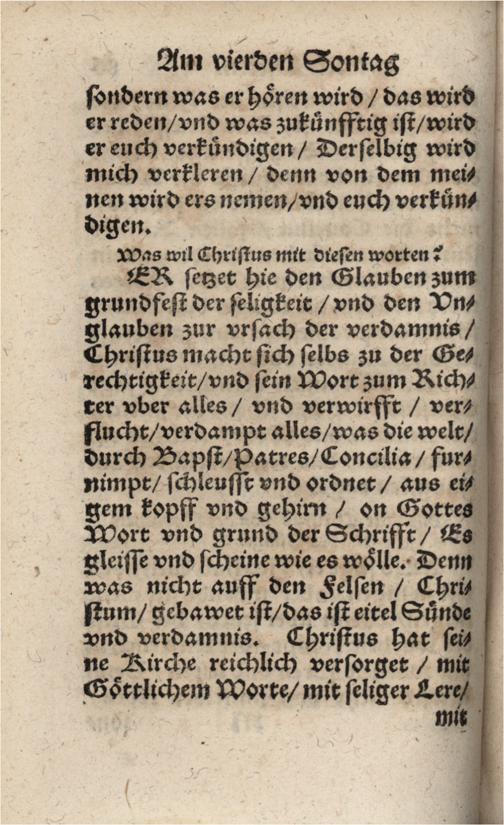 Am vierden Sontag
sondern was er hören wird / das wird
er reden/vnd was zukünfftig ist/wird
er euch verkündigen / Derselbig wird
mich verkleren / denn von dem mei⸗
nen wird ers nemen/vnd euch verkün⸗
digen.
Was wil Christus mit diesen worten?
ER setzet hie den Glauben zum
grundfest der seligkeit / vnd den Vn⸗
glauben zur vrsach der verdamnis /
Christus macht sich selbs zu der Ge⸗
rechtigkeit/vnd sein Wort zum Rich⸗
ter vber alles / vnd verwirfft / ver⸗
flucht/verdampt alles/was die welt/
durch Bapst/Patres/Concilia / fur⸗
nimpt/ schleusst vnd ordnet / aus ei⸗
gem kopff vnd gehirn / on Gottes
Wort vnd grund der Schrifft/ Es
gleisse vnd scheine wie es wölle. Denn
was nicht auff den Felsen / Chri⸗
stum/ gebawet ist/das ist eitel Sünde
vnd verdamnis. Christus hat sei⸗
ne Kirche reichlich versorget / mit
Göttlichem Worte/ mit seliger Lere/
mit